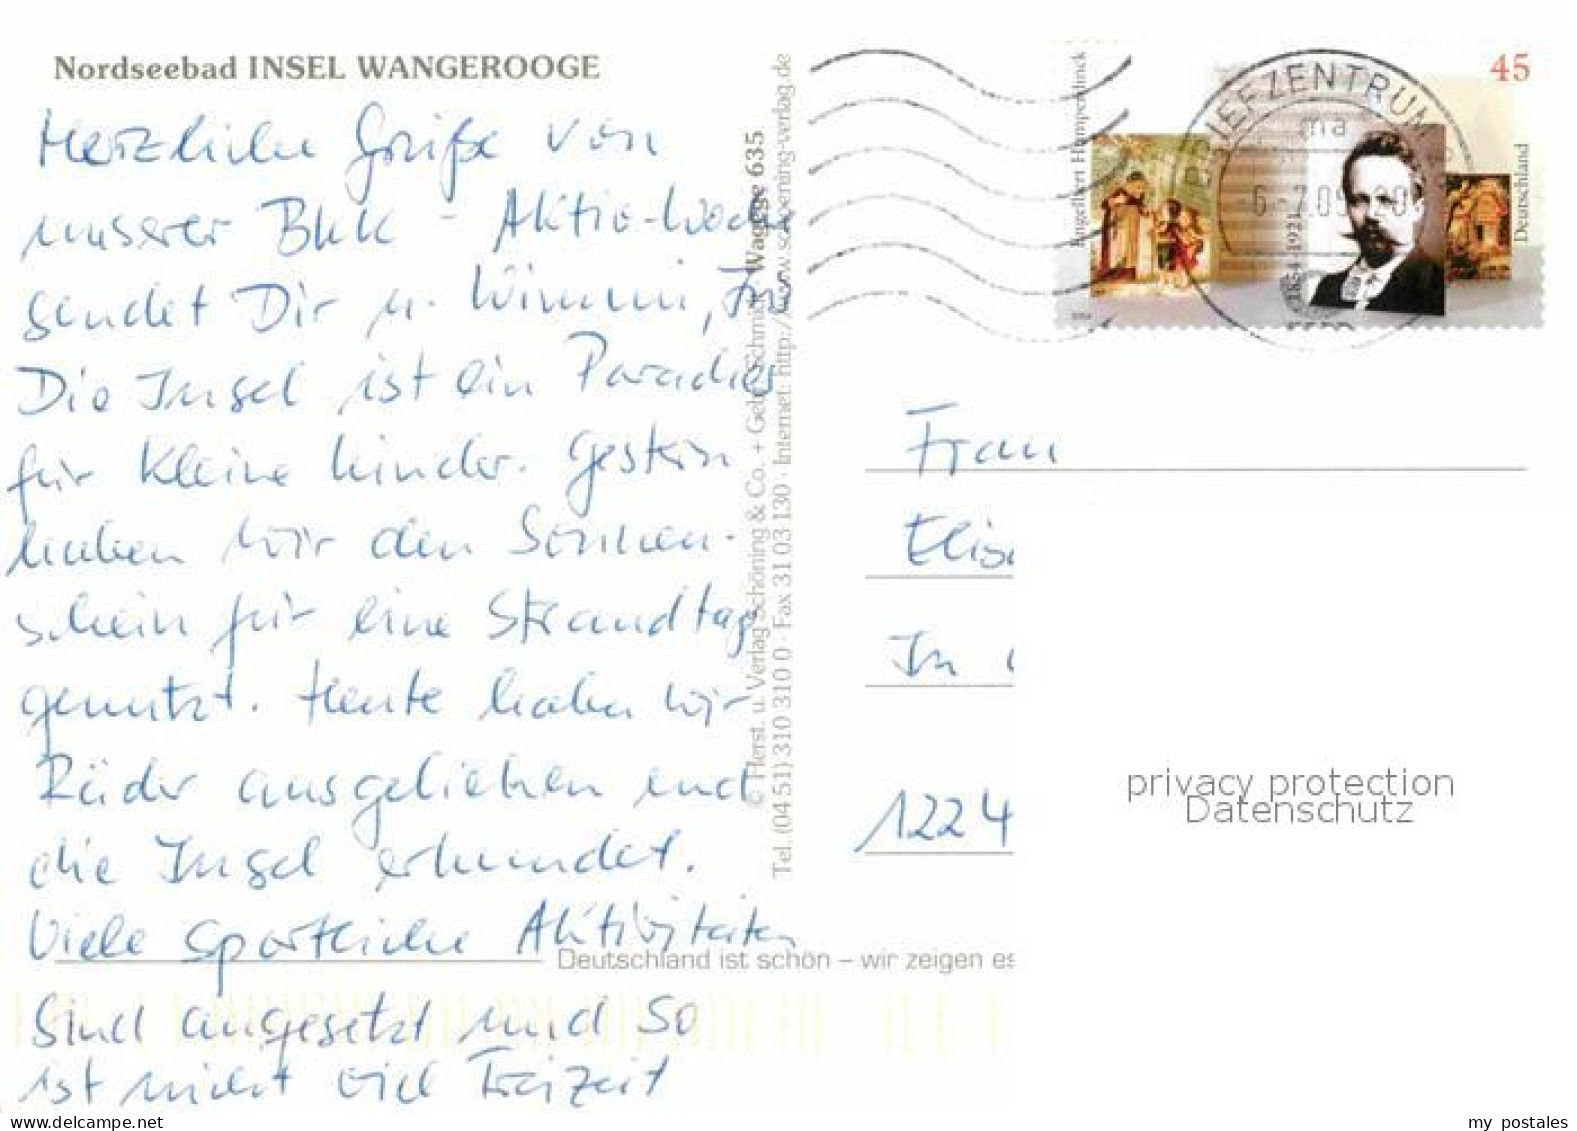 Nordseebad INSEL WANGEROOGE
Herzliche Grüße von
unserer BKK - Aktiv-Woche
sendet Dir u.
Die Insel ist ein Paradies
für kleine Kinder. Gestern
haben wir den Sonnen-
schein für eine Strandtag
genutzt. Heute haben wir
Räder ausgeliehen und
die Insel erkundet.
Viele sportliche Aktivitäten
sind angesetzt und so
ist nicht viel Freizeit
© Herst. u. Verlag Schöning & Co. + Gebr. Schmidt Wagoge 635
Tel. (04 51) 310 310 0 · Fax 31 03 130 · Internet: http://www.schoening-verlag.de
Deutschland ist schön – wir zeigen es
Engelbert Humperdinck
1854-1921
45
Deutschland
2004
BRIEFZENTRUM
ma
6.-7.09
Frau
Elis
In
1224
privacy protection
Datenschutz
www.delcampe.net
my_postales